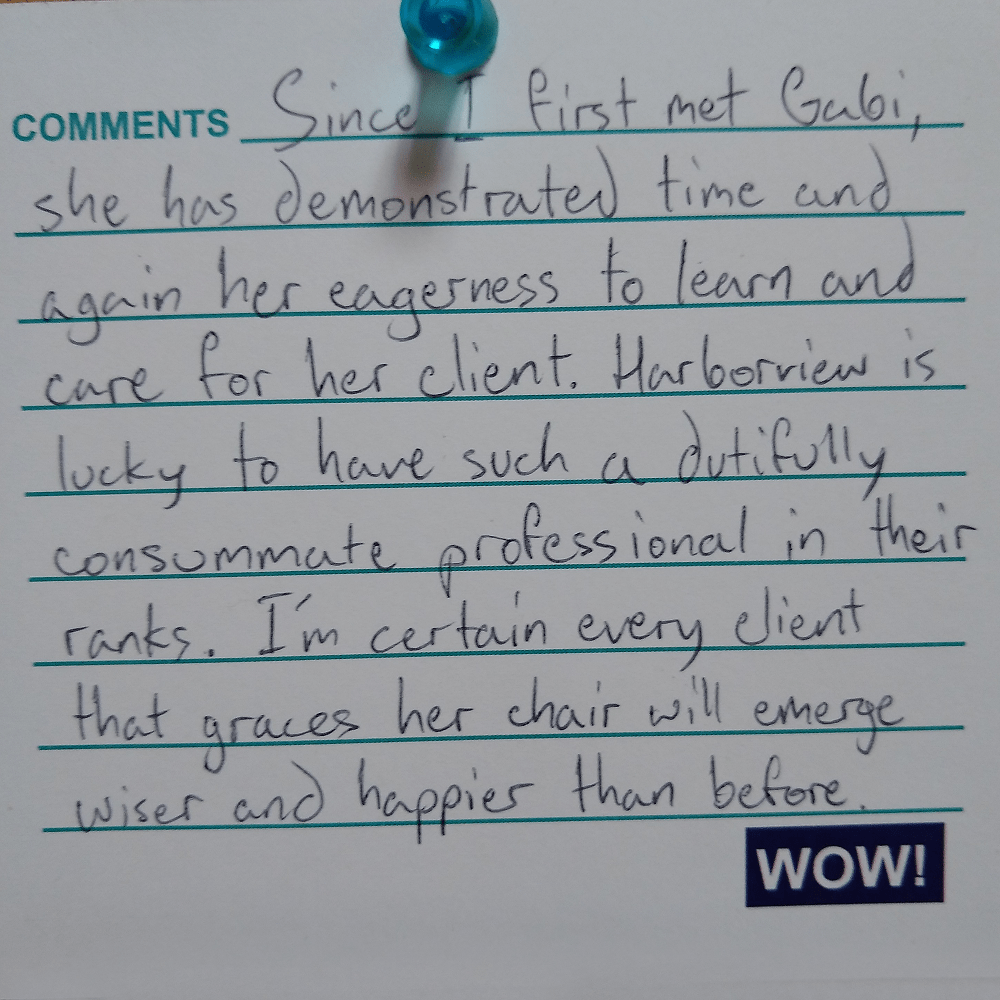 COMMENTS Since I first met Gabi,
she has demonstrated time and
again her eagerness to learn and
care for her client. Harborview is
lucky to have such a dutifully
consummate professional in their
ranks. I'm certain every client
that graces her chair will emerge
wiser and happier than before.
WOW!